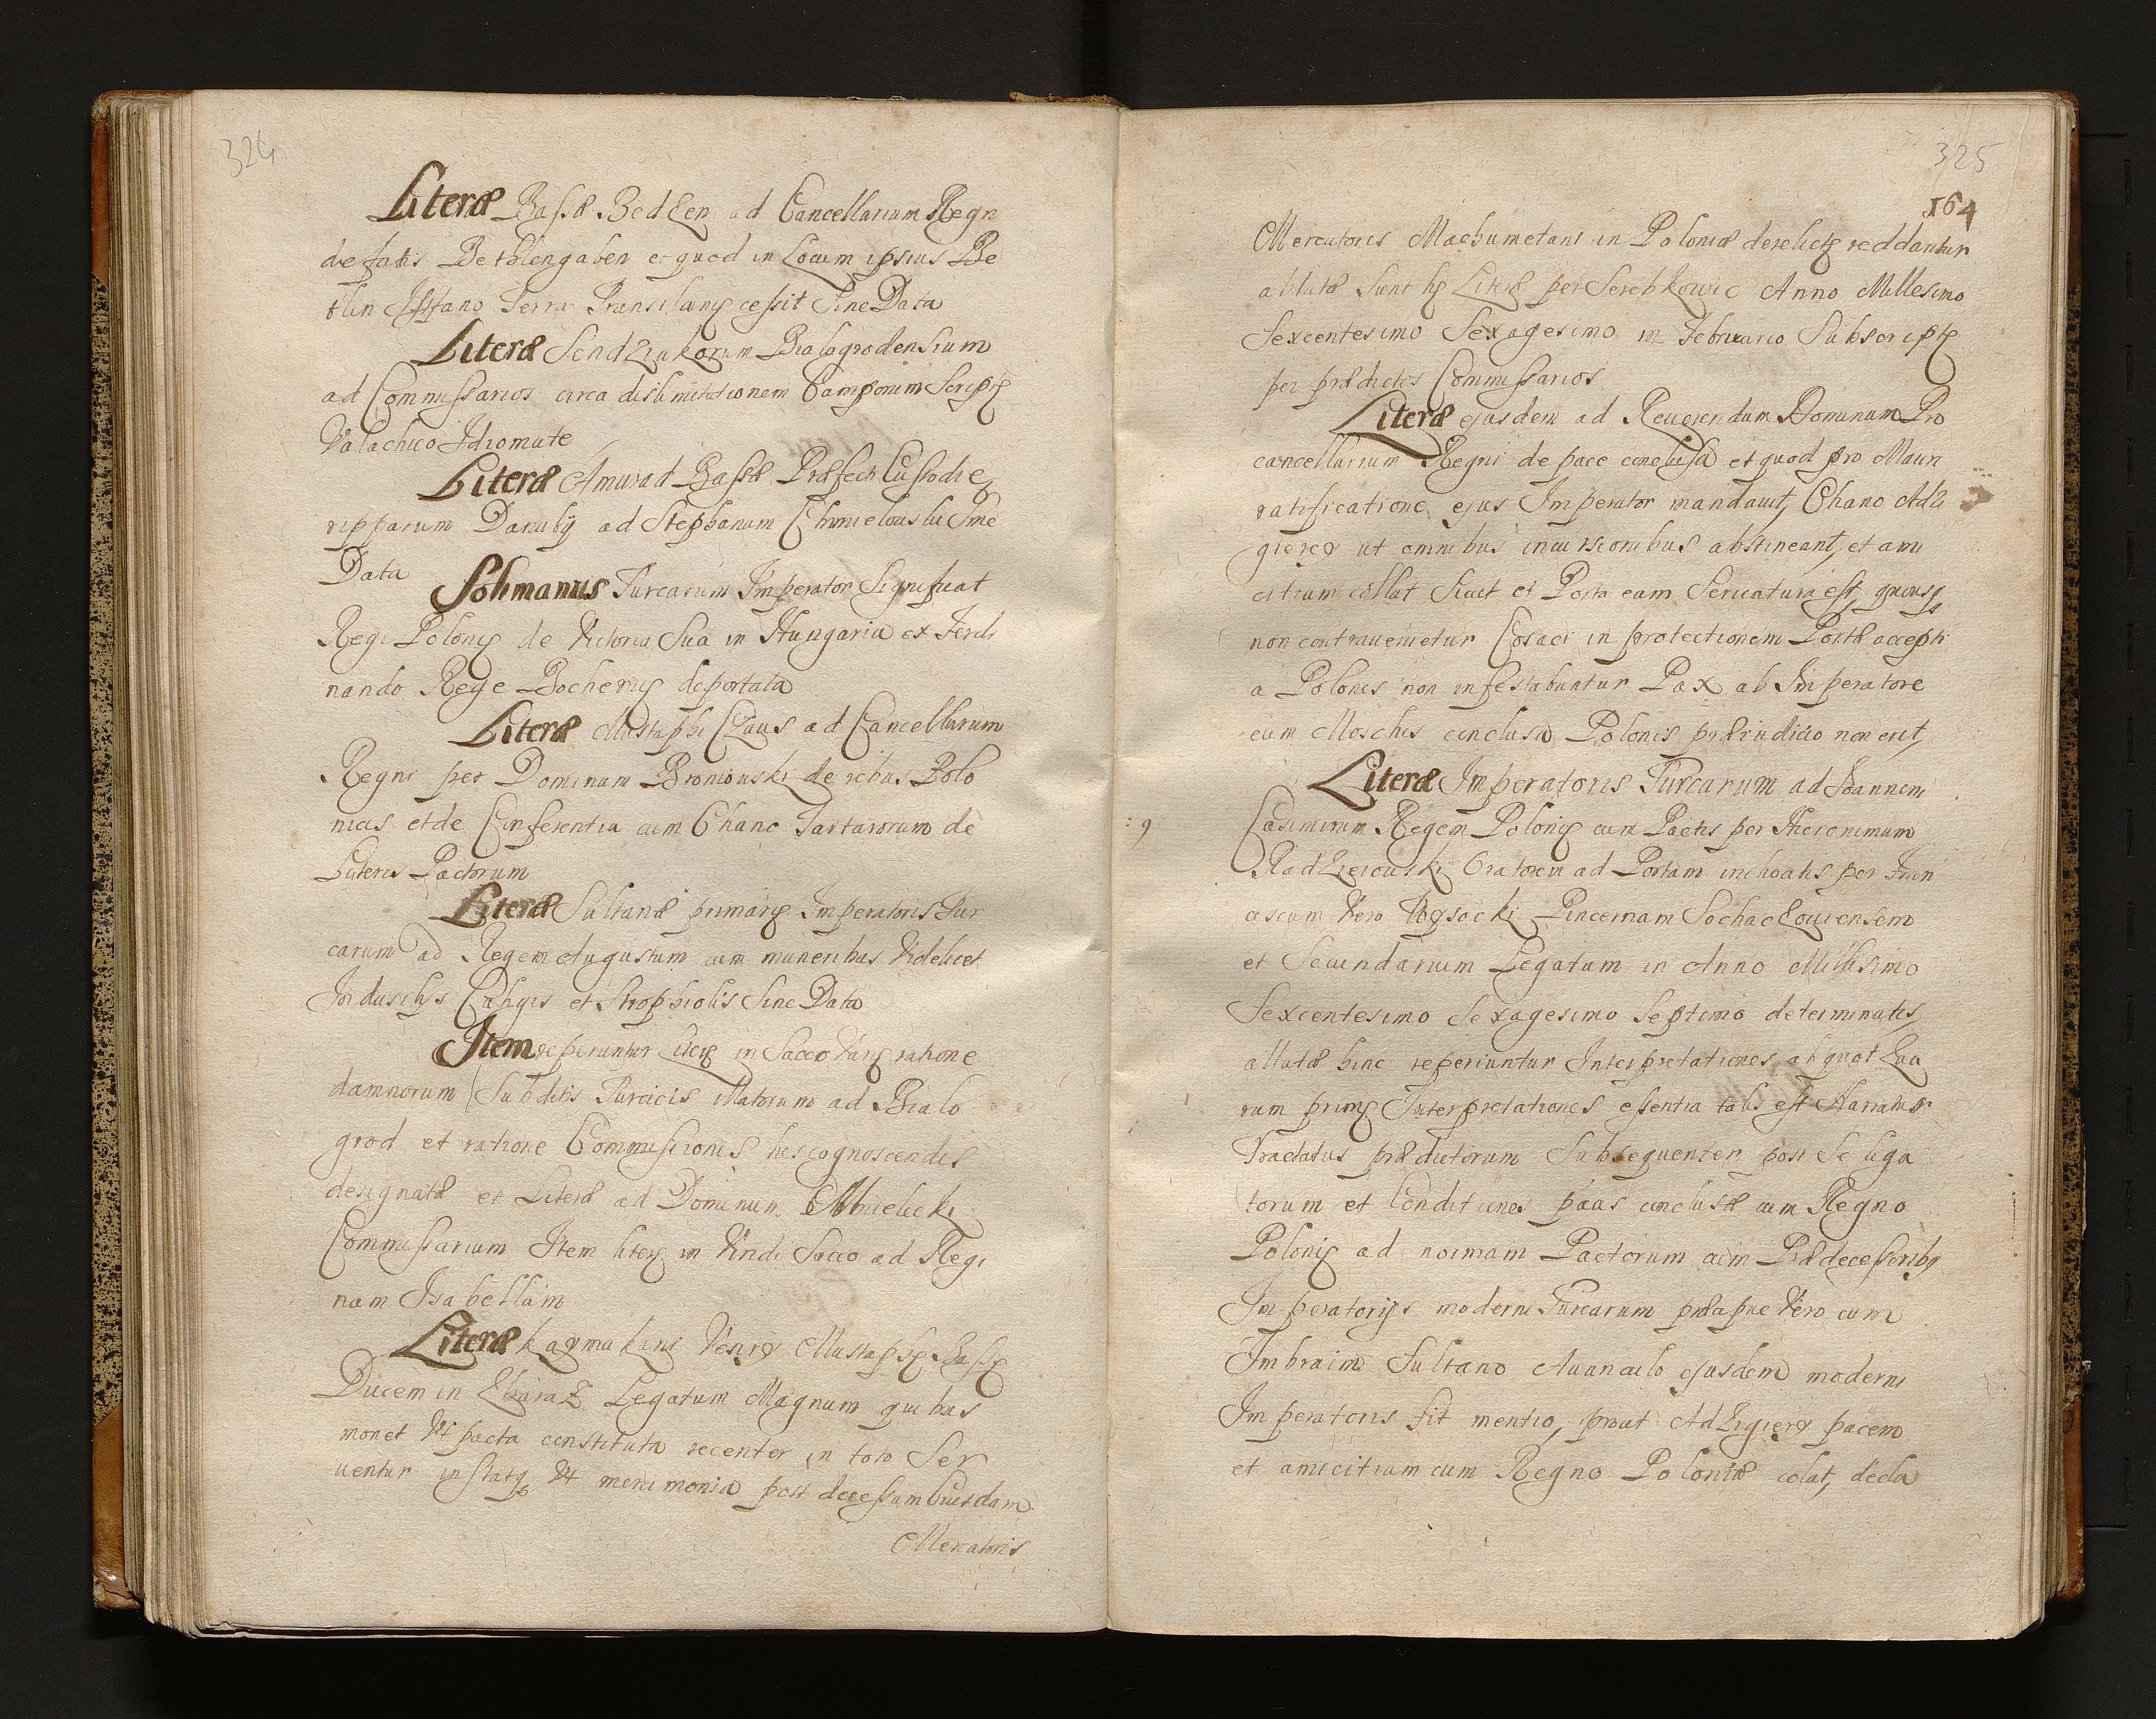 324
Literæ Bassæ Bedzen ad Cancellarium Regn
de fatis Bethlengaben et quod in Locum ipsius Be
tlin Istfano Terra Transilvanię cessit Sine Data
Literæ Sendziakorum Bialogrodensium
ad Commissarios circa dislimitationem Camporum Scriptę
Valachico Idiomate
Literæ Amurad Bassæ Præfecti Custodię
ripparum Danubij ad Stephanum Chmielouski Sine
Data
Solimanus Turcarum Imperator Significat
Regi Polonię de Victoria Sua in Hungaria ex Ferdi
nando Rege Bochemię deportata
Literæ Mustaphi Czaus ad Cancellarium
Regni per Dominum Broniouski de rebus Polo
nicis et de Conferentia cum Chano Tartarorum de
Literis Pactorum
Literæ Sultanæ primarię Imperatoris Tur
carum ad Regem Augustum cum muneribus Videlicet
Indusilys Caligis et Strophiolis Sine Data
Item reperiuntur Literę in Sacco Varię ratione
damnorum Subditis Turcicis illatorum ad Bialo
grod et ratione Commissionis hes cognoscendis
designatæ et Literæ ad Dominum Mielicki
Commissarium Item literę in Viridi Sacco ad Regi
nam Isabellam
Literæ kaymakani Vesirij Mustaphę Bassę
Ducem in Zbaraz Legatum Magnum quibus
monet Vt pacta constituta recenter in toto Ser
uentur in statq Vt merimonia post decessum Cuiusdam
Mercatoris
325
164
Mercatoris Machumetani in Poloniæ derelictę reddantur
ablatæ Sunt hę Literę per Serebkowic Anno Millesimo
Sexcentesimo Sexagesimo in Februario Subscriptę
per prædictos Commissarios
Literæ ejusdem ad Reuerendum Dominum Pro
cancellarium Regni de pace conclusa et quod pro Maiori
ratificatione ejus Imperator mandauit, Chano Adzi
gierey ut omnibus incursionibus abstineant, et ami
citiam collat Sicut et Porta eam Seruatura est, quousq
non contrauenietur Cosaci in protectionem Portæ accepti
a Polonis non infestabuntur Pax ab Imperatore
cum Moschis conclusa Polonis præiudicio non erit,
Literæ Imperatoris Turcarum ad Joannem
: 9
Casimirum Regem Polonię cum Pactis per Hieronimum
Radzieiouski Oratorem ad Portam inchoatis per Fran
ciscum Vero Wysocki Pincernam Sochaczouiensem
et Secundarium Legatum in Anno Millesimo
Sexcentesimo Sexagesimo Septimo determinatis,
allatæ hinc reperiuntur Interpretationes aliquot Qua
rum primę Interpretationes essentia talis est Narratur
Tractatus prædictorum Subsequenter post Se liga
torum et Conditiones pacis conclusæ cum Regno
Polonię ad normam Pactorum cum Prædecessoribq
Imperatorijs moderni Turcarum præcipue Vero cum
Imbraim Sultano Auunculo ejusdem moderni
Imperatoris fit mentio, prout Adzigierey pacem
et amicitiam cum Regno Poloniæ colat, decla